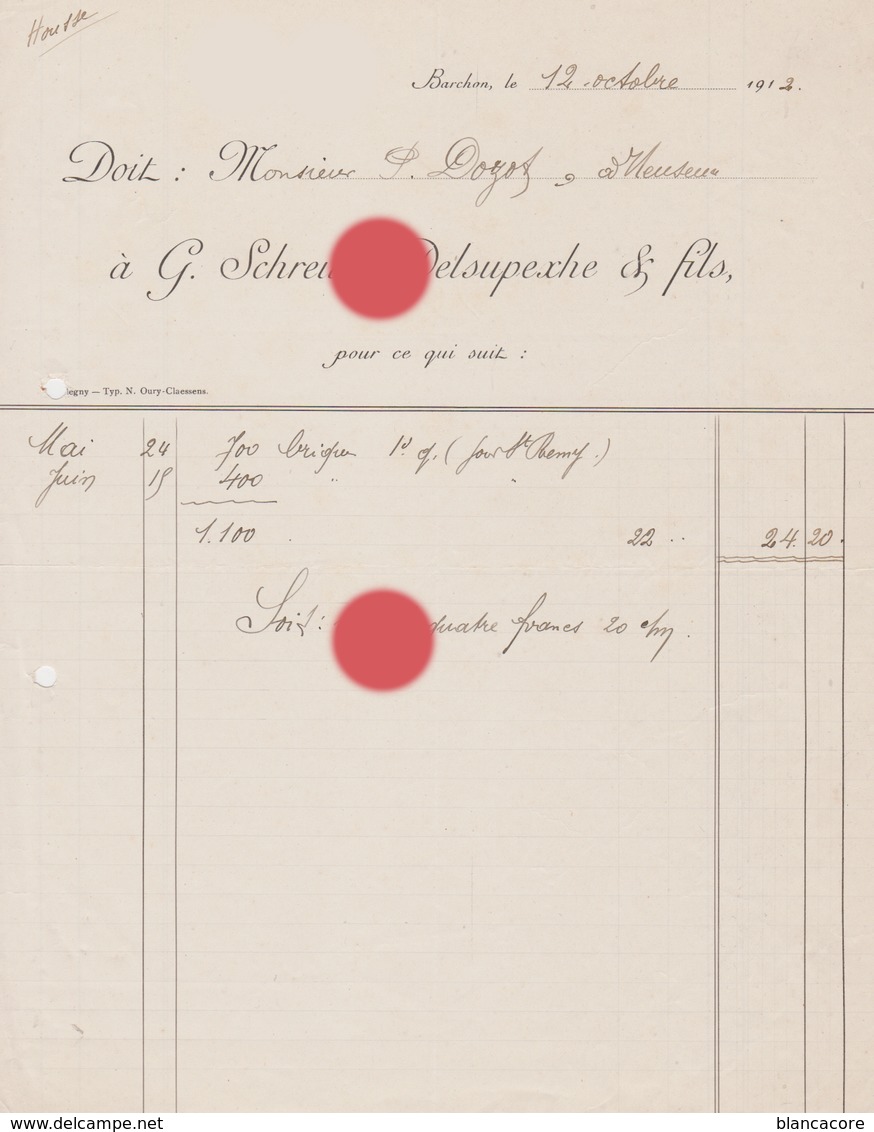 Housse
Barchon, le 12 octobre 1912.
Doit : Monsieur P. Dozot, d'Heuseux
à G. Schreu Delsupexhe & fils,
pour ce qui suit :
legny — Typ. N. Oury-Claessens.
Mai 24 700 briques 1e q. (four St Remy.)
Juin 15 400 " "
1.100 22 .. 24.20.
Soit : quatre francs 20 cms.
www.delcampe.net blancacore